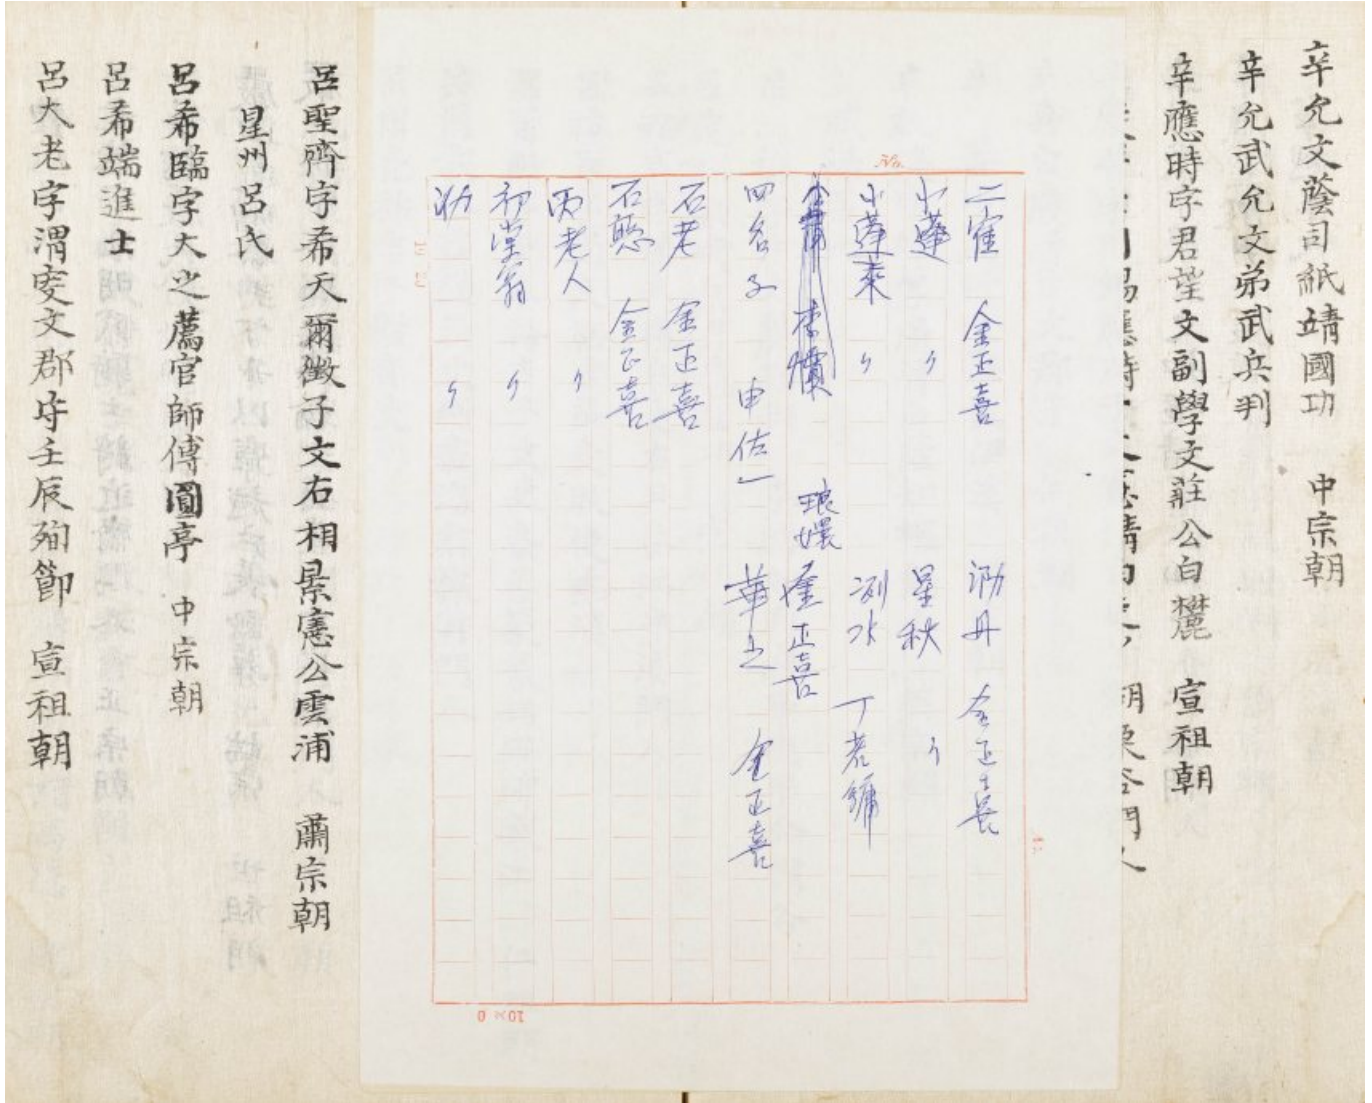 辛允文蔭司紙靖國功 中宗朝
辛允武允文弟武兵判
辛應時字君望文副學文莊公白麓 宣祖朝
二雀 金正喜 泐丹 金正喜
小蓬 〃 星秋 〃
小蓬萊 〃 洌水 丁若鏞
李
琅嬛 金正喜
四名子 申佐 華之 金正喜
石老 金正喜
石憨 金正喜
丙老人 〃
初堂翁 〃
泐 〃
呂聖齊字希天爾徵子文右相景憲公雲浦 肅宗朝
星州呂氏
呂希臨字大之薦官師傅圓亭 中宗朝
呂希端進士
呂大老字渭叟文郡守壬辰殉節 宣祖朝
10×